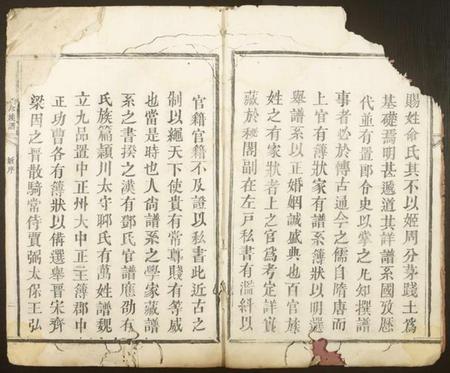 賜姓俞氏其不以姬周分茅踐土為
基礎焉明甚遡道其詳譜系國攷歷
代並有置郎令史以掌之凡知撰譜
事者必於博古通今之儒自隋唐而
上官有簿狀家有譜系簿狀以明選
舉譜系以正婚姻誠盛典也百官族
姓之有家狀者上之官為考定詳實
藏於秘閣副在左戶私書有濫糾以
官籍官籍不及證以私書此近古之
制以繩天下使貴有常尊賤有等威
也當是時也人尚譜系之學家藏譜
系之書揆之漢有鄧氏官譜應劭有
氏族篇潁川太守聊氏有萬姓譜魏
立九品置中正州大中正主簿郡中
正功曹各有簿狀以備選舉晉宋齊
梁因之晉散騎常侍賈弼太保王弘
族譜
新序